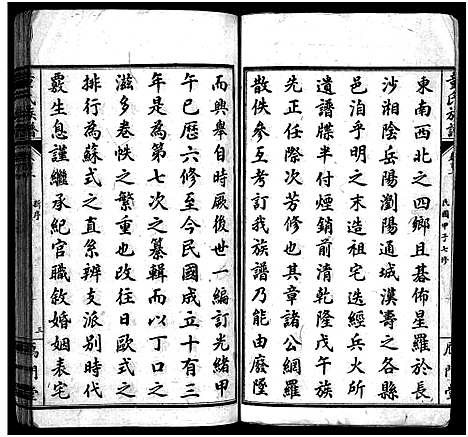 東南西北之四鄉且碁佈星羅於長
沙湘陰岳陽瀏陽通城漢壽之各縣
洎乎明之末造選經兵火祖宗
遺譜牒半付煙銷前清乾隆戊午族
先正任際次芳修也其章諸公網羅
散佚參互考訂我族譜乃能由廢墜
民國甲子七修
而興舉自時厥後世一編訂光緒甲
午已歷六修至今民國成立十有三
年是為第七次之纂輯而以丁口之
滋多卷帙之繁重也改日歐式之
排行為蘇式之直系辨支派別時代
覈生息謹繼承紀官職敘婚姻表宅
新序
三